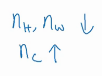 n_H, n_W ↓
n_C ↑